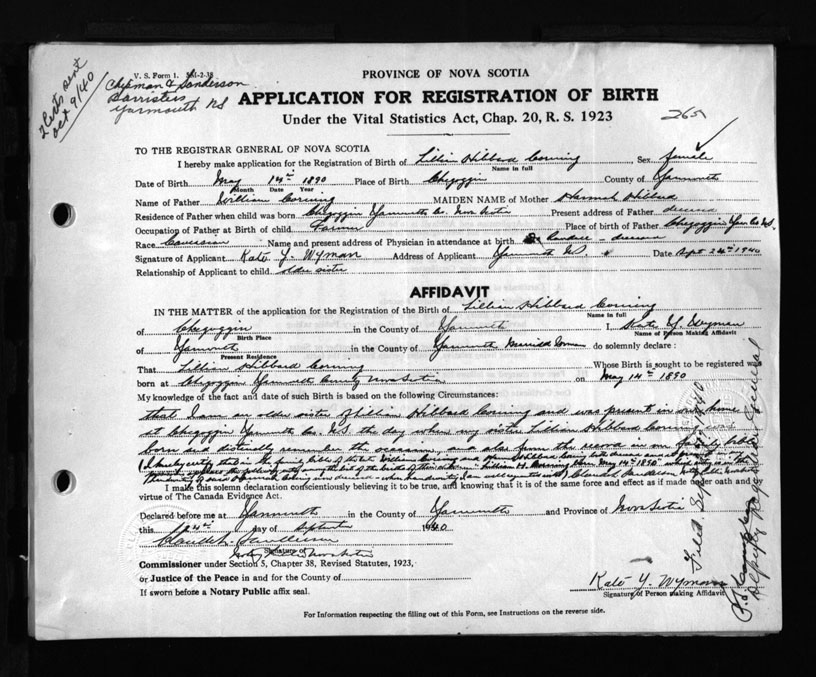 V. S. Form 1.
PROVINCE OF NOVA SCOTIA
2 Certs sent
Oct 9/40
Chipman & Sanderson
Barristers
Yarmouth NS
APPLICATION FOR REGISTRATION OF BIRTH
Under the Vital Statistics Act, Chap. 20, R. S. 1923
265
TO THE REGISTRAR GENERAL OF NOVA SCOTIA
I hereby make application for the Registration of Birth of Lillian Hibbard Corning Sex female
Name in full
Date of Birth May 14th 1890 Place of Birth Chegoggin County of Yarmouth
Month Date Year
Name of Father William Corning MAIDEN NAME of Mother Hannah Hibbard
Residence of Father when child was born Chegoggin Yarmouth Co. Nova Scotia Present address of Father deceased
Occupation of Father at Birth of child Farmer Place of birth of Father Chegoggin Yar Co NS.
Race Caucasian Name and present address of Physician in attendance at birth deceased
Signature of Applicant Kate Y. Wyman Address of Applicant Yarmouth NS Date Sept 24th 1940
Relationship of Applicant to child older sister
AFFIDAVIT
IN THE MATTER of the application for the Registration of the Birth of Lillian Hibbard Corning
Name in full
of Chegoggin in the County of Yarmouth I Kate Y. Wyman
Birth Place Name of Person Making Affidavit
of Yarmouth in the County of Yarmouth Married Woman do solemnly declare:
Present Residence
That Lillian Hibbard Corning Whose Birth is sought to be registered was
born at Chegoggin Yarmouth County Nova Scotia on May 14th 1890
My knowledge of the fact and date of such Birth is based on the following Circumstances:
that I am an older sister of Lillian Hibbard Corning and was present in our home
at Chegoggin Yarmouth Co. N.S. the day when my sister Lillian Hibbard Corning was
born and distinctly remember the occasion, and also from the record in our family bible
I hereby certify that in the family bible of the late William Corning and Hannah Hibbard Corning
the list of the births of their children - Lillian H. Corning born May 14th 1890
I make this solemn declaration conscientiously believing it to be true, and knowing that it is of the same force and effect as if made under oath and by
virtue of The Canada Evidence Act.
Declared before me at Yarmouth in the County of Yarmouth and Province of Nova Scotia
this 24th day of September 1940
Signature of
Notary Public Nova Scotia
Commissioner under Section 5, Chapter 38, Revised Statutes, 1923,
or Justice of the Peace in and for the County of
If sworn before a Notary Public affix seal.
Kate Y. Wyman
Signature of Person Making Affidavit
Deputy Registrar General
For Information respecting the filling out of this Form, see Instructions on the reverse side.